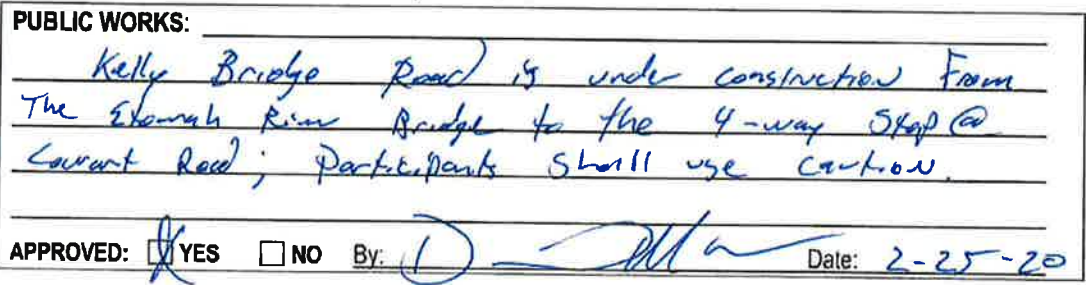 PUBLIC WORKS:
Kelly Bridge Road is under construction From
The Etowah River Bridge to the 4-way Stop @
Road; Participants Shall use caution.
APPROVED: YES NO By: Date: 2-25-20